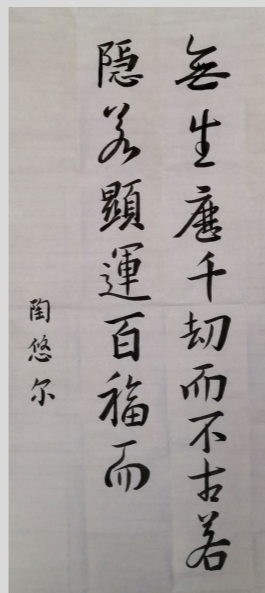 無生歷千劫而不古若
隐若顯運百福而
陶悠尔